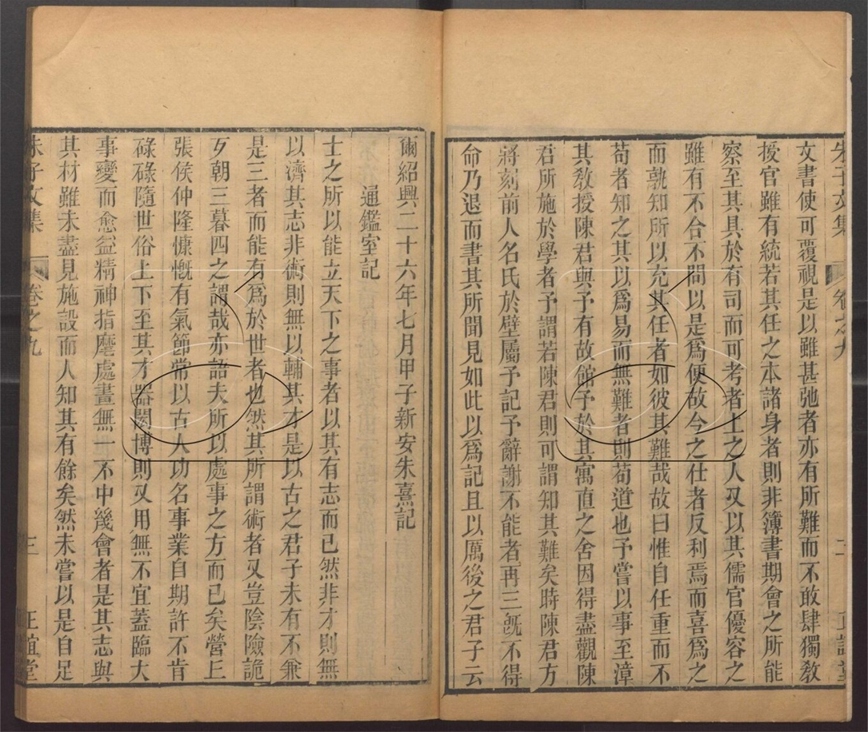 朱子文集 卷之九 二 正誼堂
文書使可覆視是以雖甚弛者亦有所難而不敢肆獨教
授官雖有統若其任之本諸身者則非簿書期會之所能
察至其具於有司而可考者上之人又以其儒官優容之
雖有不合不問以是為便故今之仕者反利焉而喜為之
而孰知所以充其任者如彼其難哉故曰惟自任重而不
苟者知之其以為易而無難者則苟道也予嘗以事至漳
其教授陳君與予有故館予於其寓直之舍因得盡觀陳
君所施於學者予謂若陳君則可謂知其難矣時陳君方
將刻前人名氏於壁屬予記予辭謝不能者再三既不得
命乃退而書其所聞見如此以為記且以厲後之君子云
爾紹興二十六年七月甲子新安朱熹記
通鑑室記
士之所以能立天下之事者以其有志而已然非才則無
以濟其志非術則無以輔其才是以古之君子未有不兼
是三者而能有為於世者也然其所謂術者又豈陰險詭
歹朝三暮四之謂哉亦語夫所以處事之方而已矣營上
張侯仲隆慷慨有氣節常以古人功名事業自期許不肯
碌碌隨世俗上下至其才器閎博則又用無不宜蓋臨大
事變而愈益精神指麾處畫無一不中幾會者是其志與
其材雖未盡見施設而人知其有餘矣然未嘗以是自足
朱子文集 卷之九 三 正誼堂